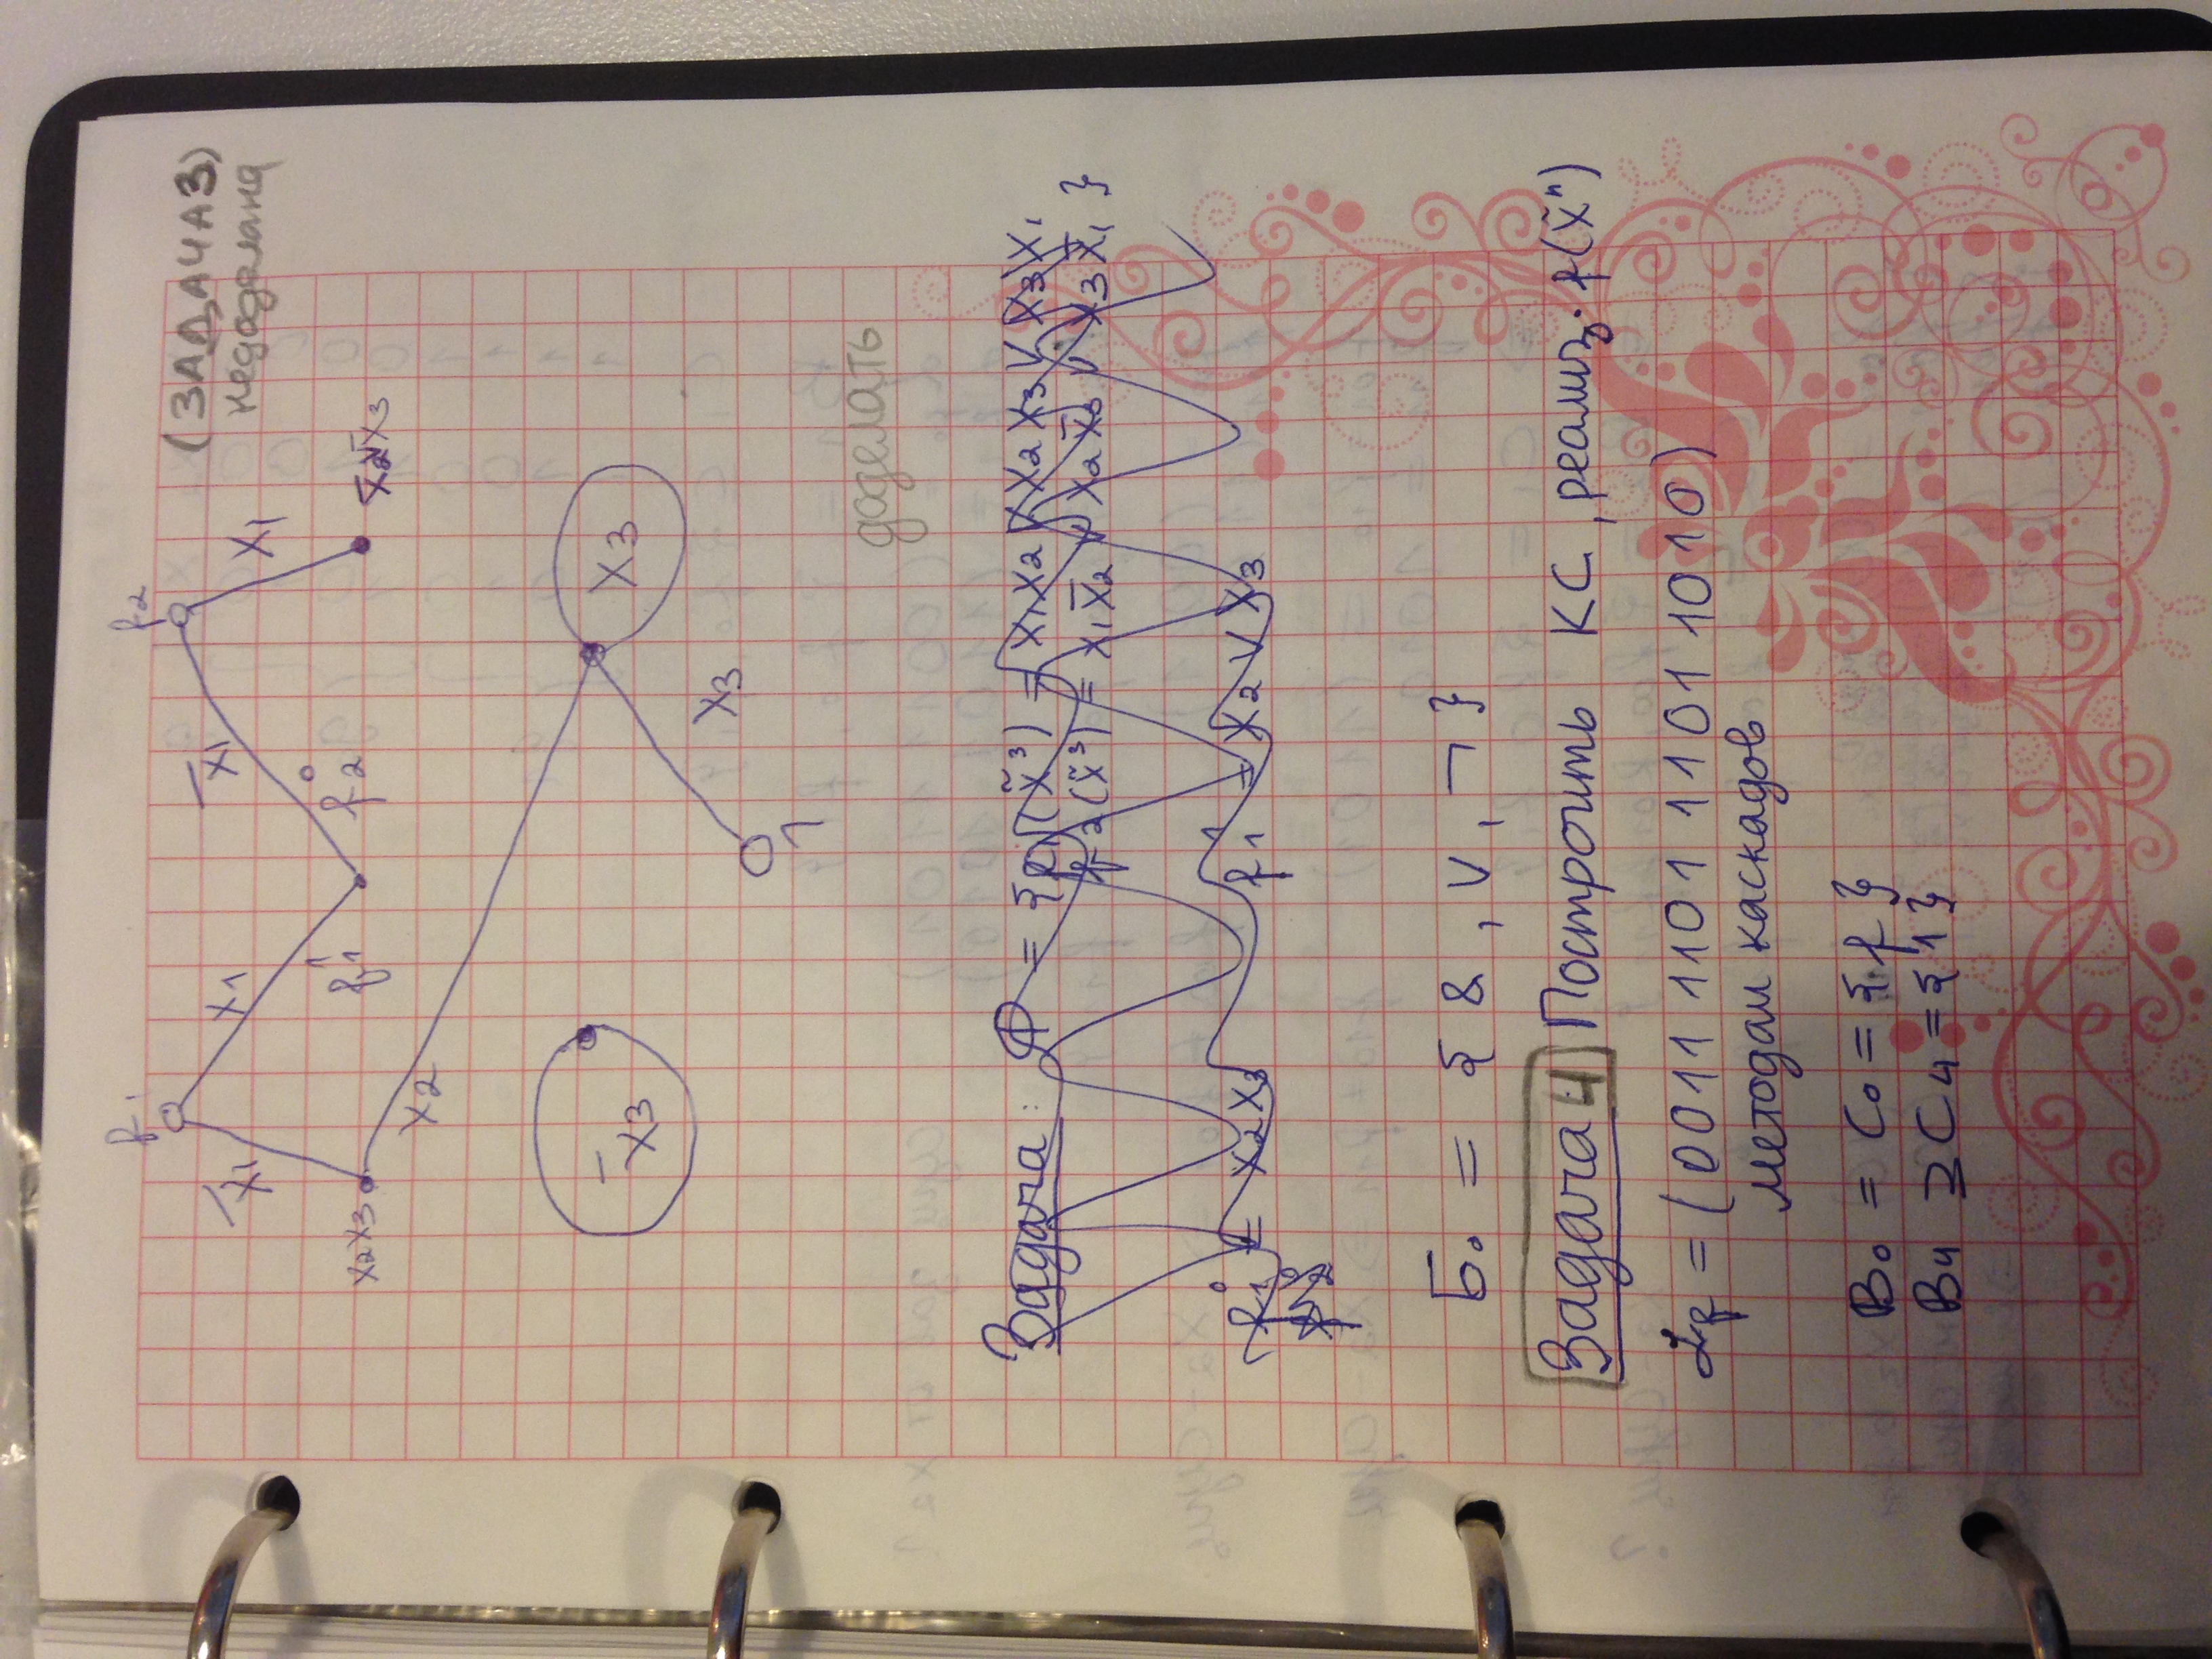 (ЗАДАЧА3)
недоделана
f₁ f₂
x̄₁ x₁ x̄₁ x₁
x₂x₃ f₁¹ f₂⁰
x₂
x̄₃ x₃
x₃
1
доделать
Задача: Ф = {f₁(x̃³) = x₁x₂ V x₂x₃ V x₃x₁
f₂(x̃³) = x₁x̄₂ V x₂x̄₃ V x₃x̄₁ }
f₁⁰ = x₂x₃ f₁¹ = x₂ V x₃
Б₀ = { &, V, ¬ }
Задача 4 Построить КС, реализ. f(x̃ⁿ)
α_f = (0011 1101 1101 1010)
методом каскадов
B₀ = C₀ = {f}
B₄ ⊇ C₄ = {1}